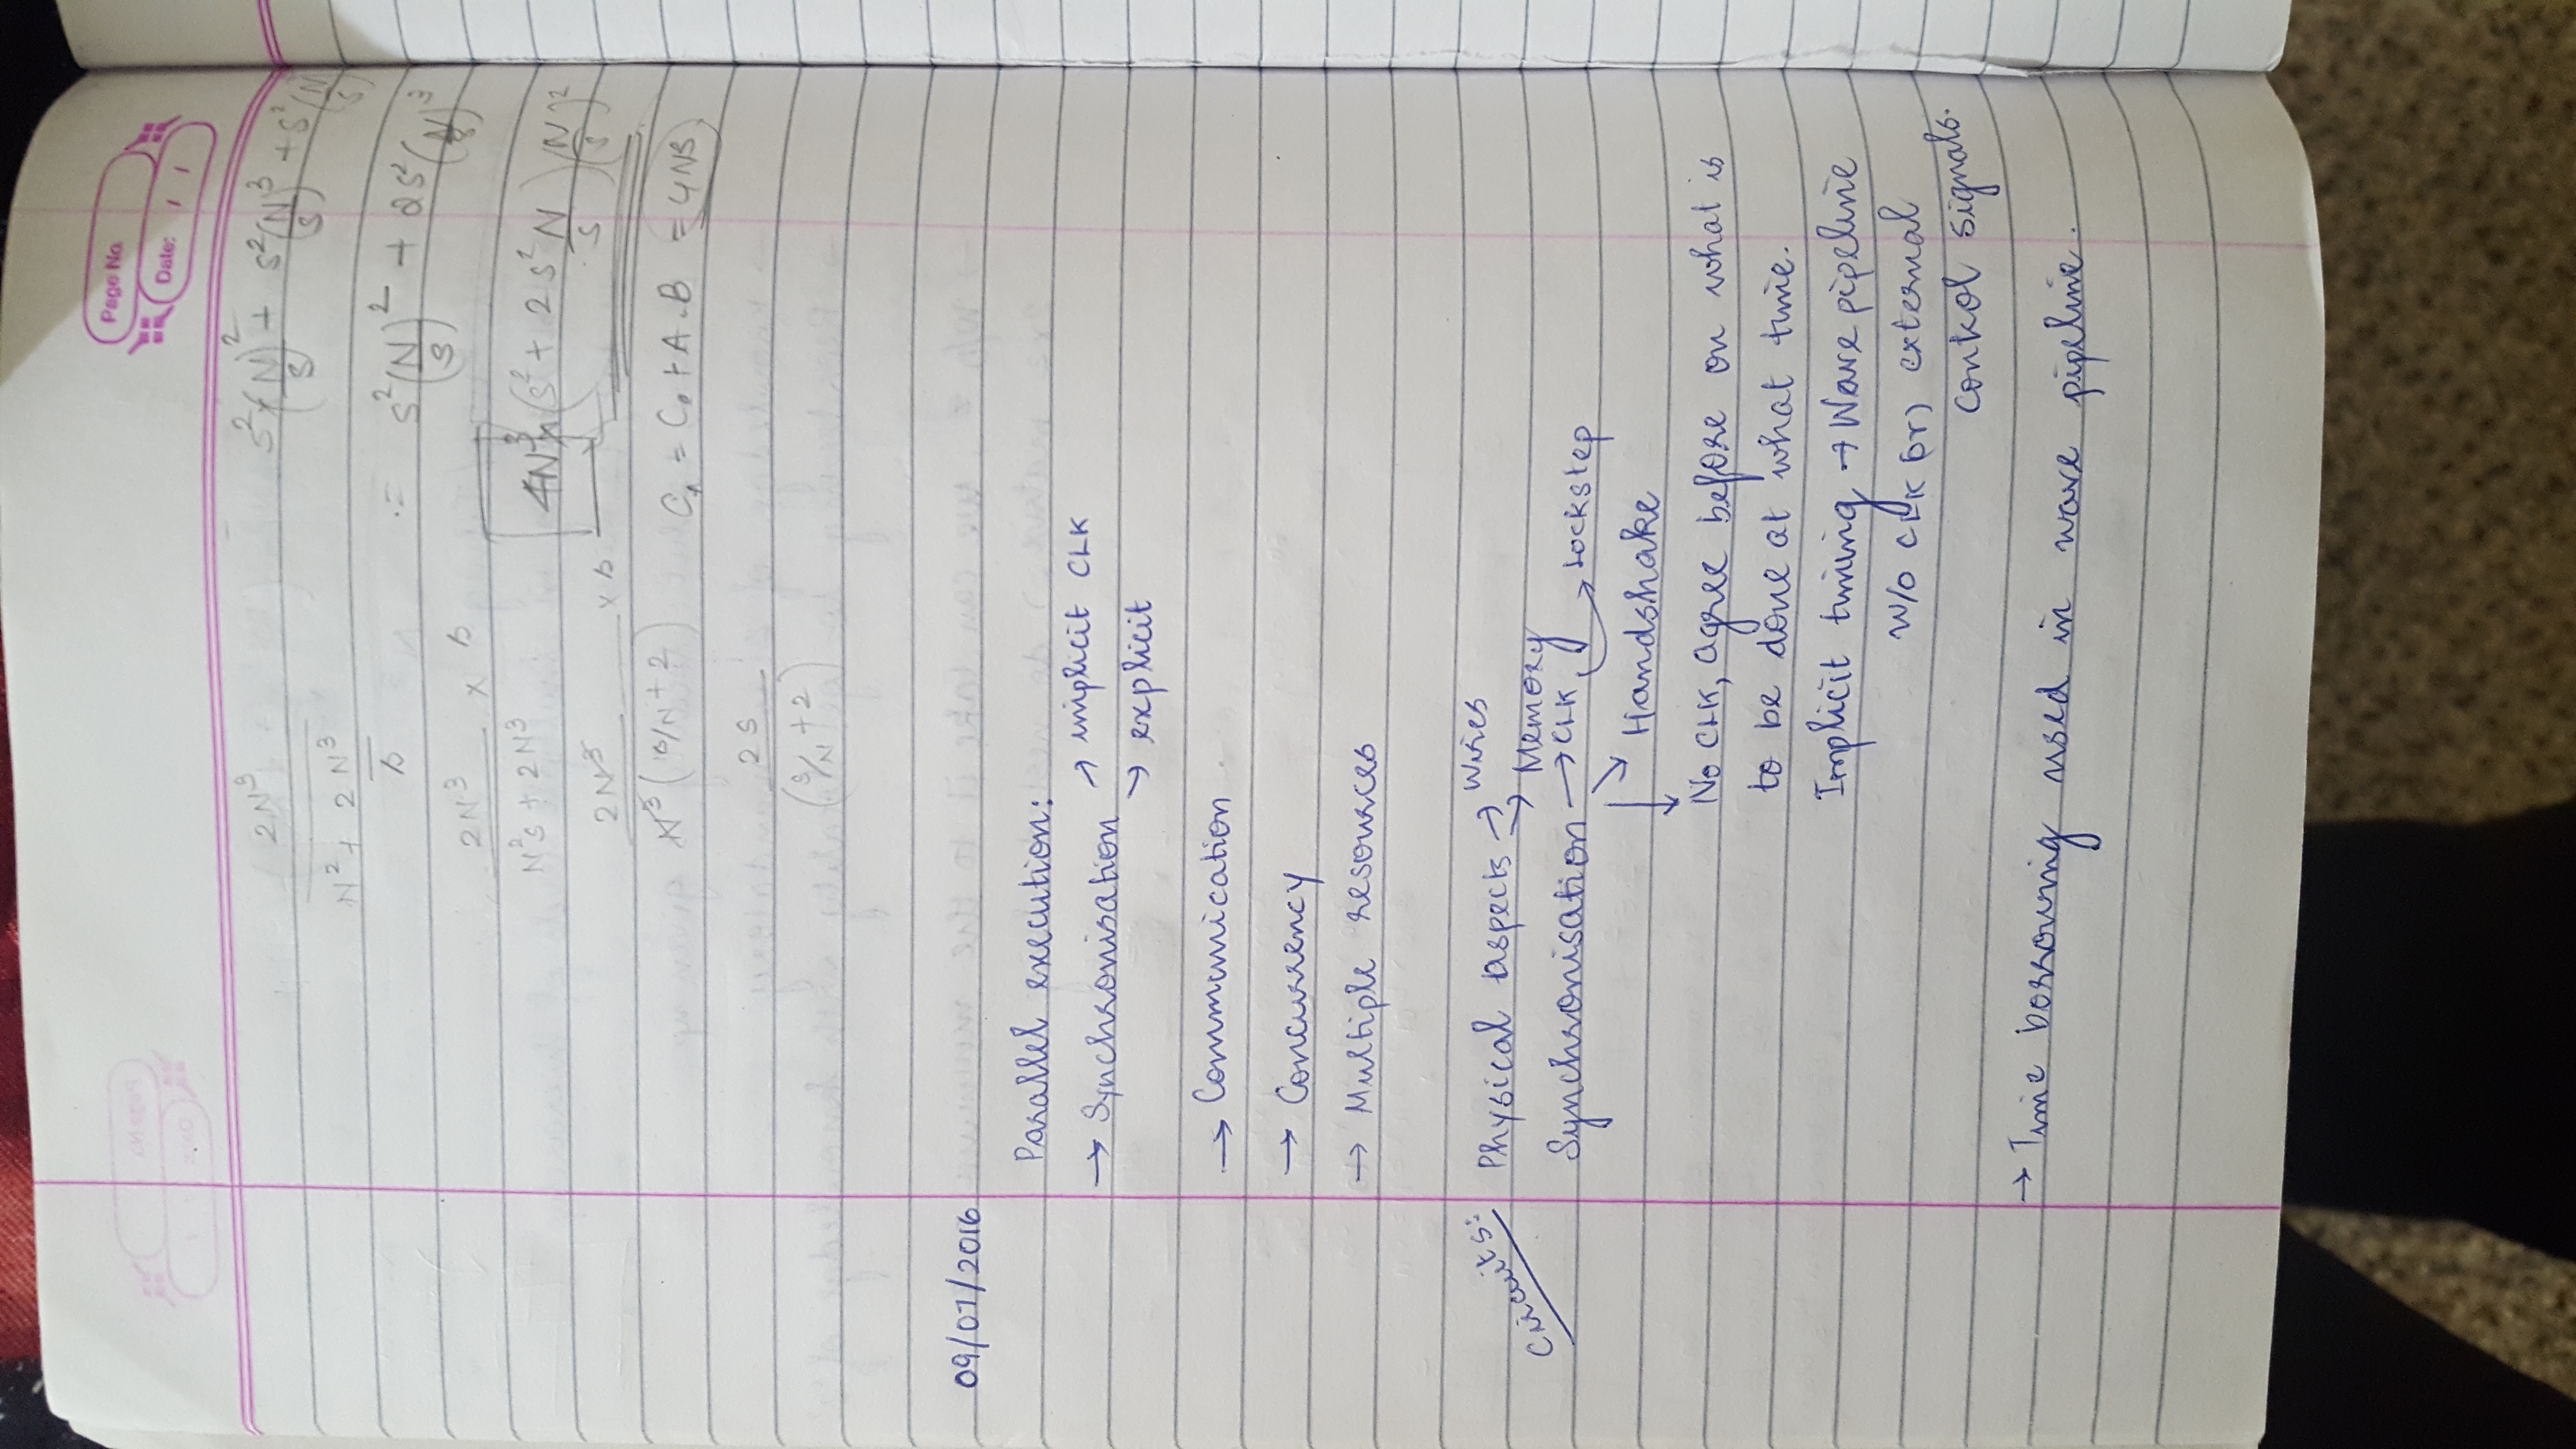 Page No.
Date: / /
2N³
N² + 2 N³
s
2N³ × s
N²s + 2N³
2N³ × s
N³ (s/N + 2)
2s
(s/N + 2)
s²(N/s)² + s²(N/s)³ + s²(N/s)
= s²(N/s)² + 2s²(N/s)³
4N³ (s² + 2s² N/s)(N/s)²
= C₀ + A.B = 4N³
09/07/2016
Parallel execution:
→ Synchronisation → implicit CLK
→ explicit
→ Communication
→ Concurrency
→ Multiple resources
Circuits:
Physical aspects → Wires
→ Memory
Synchronisation → CLK → Lockstep
→ Handshake
No CLK, agree before on what is
to be done at what time.
Implicit timing → Wave pipeline
w/o CLK (or) external
control signals.
→ Time borrowing used in wave pipeline.